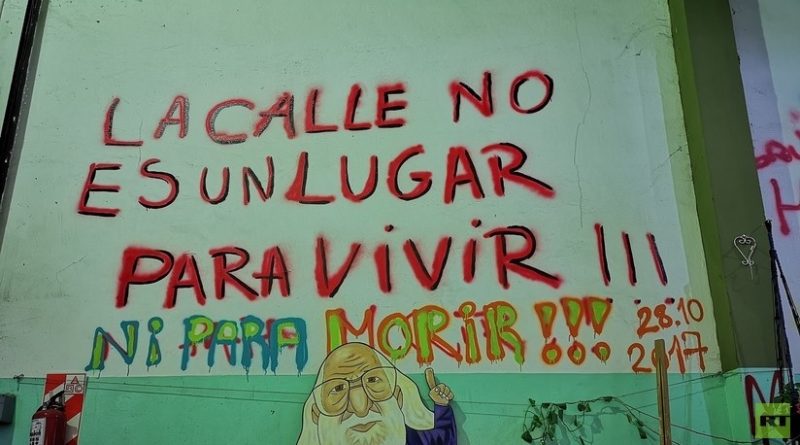 LA CALLE NO
ES UN LUGAR
PARA VIVIR !!!
NI PARA MORIR !!!
28.10
2017
RT